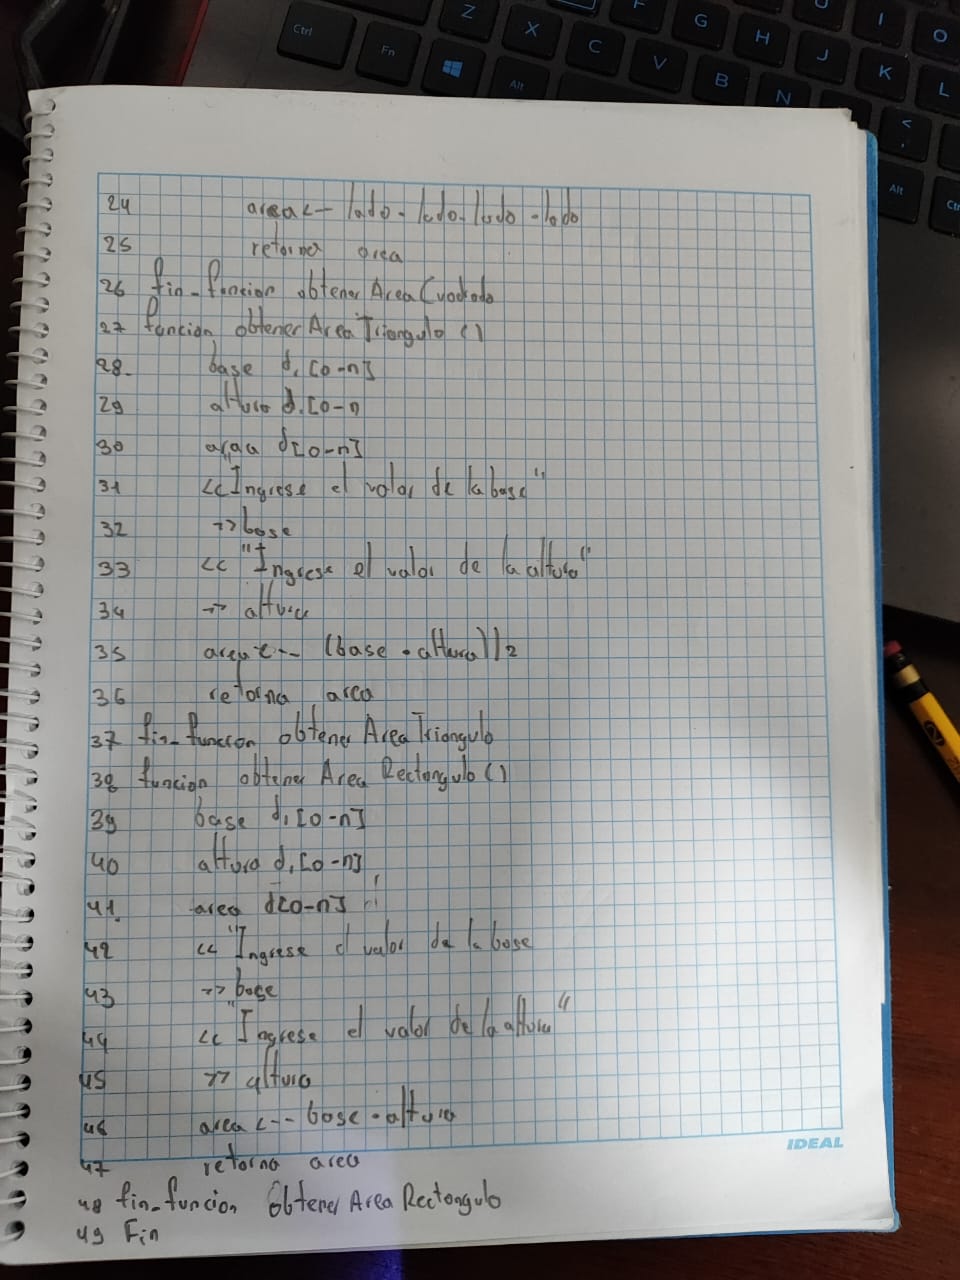 Z
F
G
U
I
O
Ctrl
Fn
X
C
V
H
B
J
N
K
L
Alt
<
,
Alt
Ctr
24 area <-- lado * lado * lado * lado
25 retorna area
26 fin_funcion obtenerAreaCuadrado
27 funcion obtenerAreaTriangulo ()
28. base d, [0-n]
29 altura d. [0-n
30 area d[0-n]
31 <<Ingrese el valor de la base"
32 >>base
33 << "Ingrese el valor de la altura"
34 >> altura
35 area <-- (base * altura)/2
36 retorna area
37 fin_funcion obtenerAreaTriangulo
38 funcion obtener Area Rectangulo ()
39 base d, [0-n]
40 altura d, [0-n]
41. area d[0-n]
42 << "Ingrese el valor de la base
43 >> base
44 << "Ingrese el valor de la altura"
45 >> altura
46 area <-- base * altura
47 retorna area
48 fin_funcion obtener Area Rectangulo
49 Fin
IDEAL
2